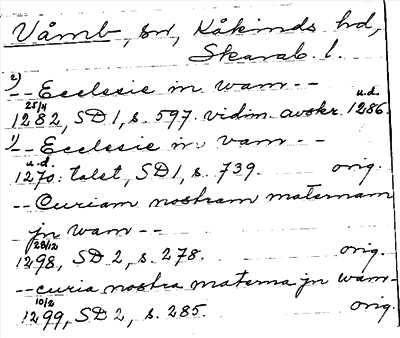 Våmb, sn, Kåkinds hd,
Skarab. l.
2)
-- Ecclesie in wam --
25/4 u.d.
1282, SD 1, s. 597. vidim. avskr. 1286.
1)
-- Ecclesie in vam --
u.d.
1270: talet, SD 1, s. 739. orig.
-- Curiam nostram maternam
jn wam --
28/12
1298, SD 2, s. 278. orig.
-- curia nostra materna jn wam --
10/2
1299, SD 2, s. 285. orig.